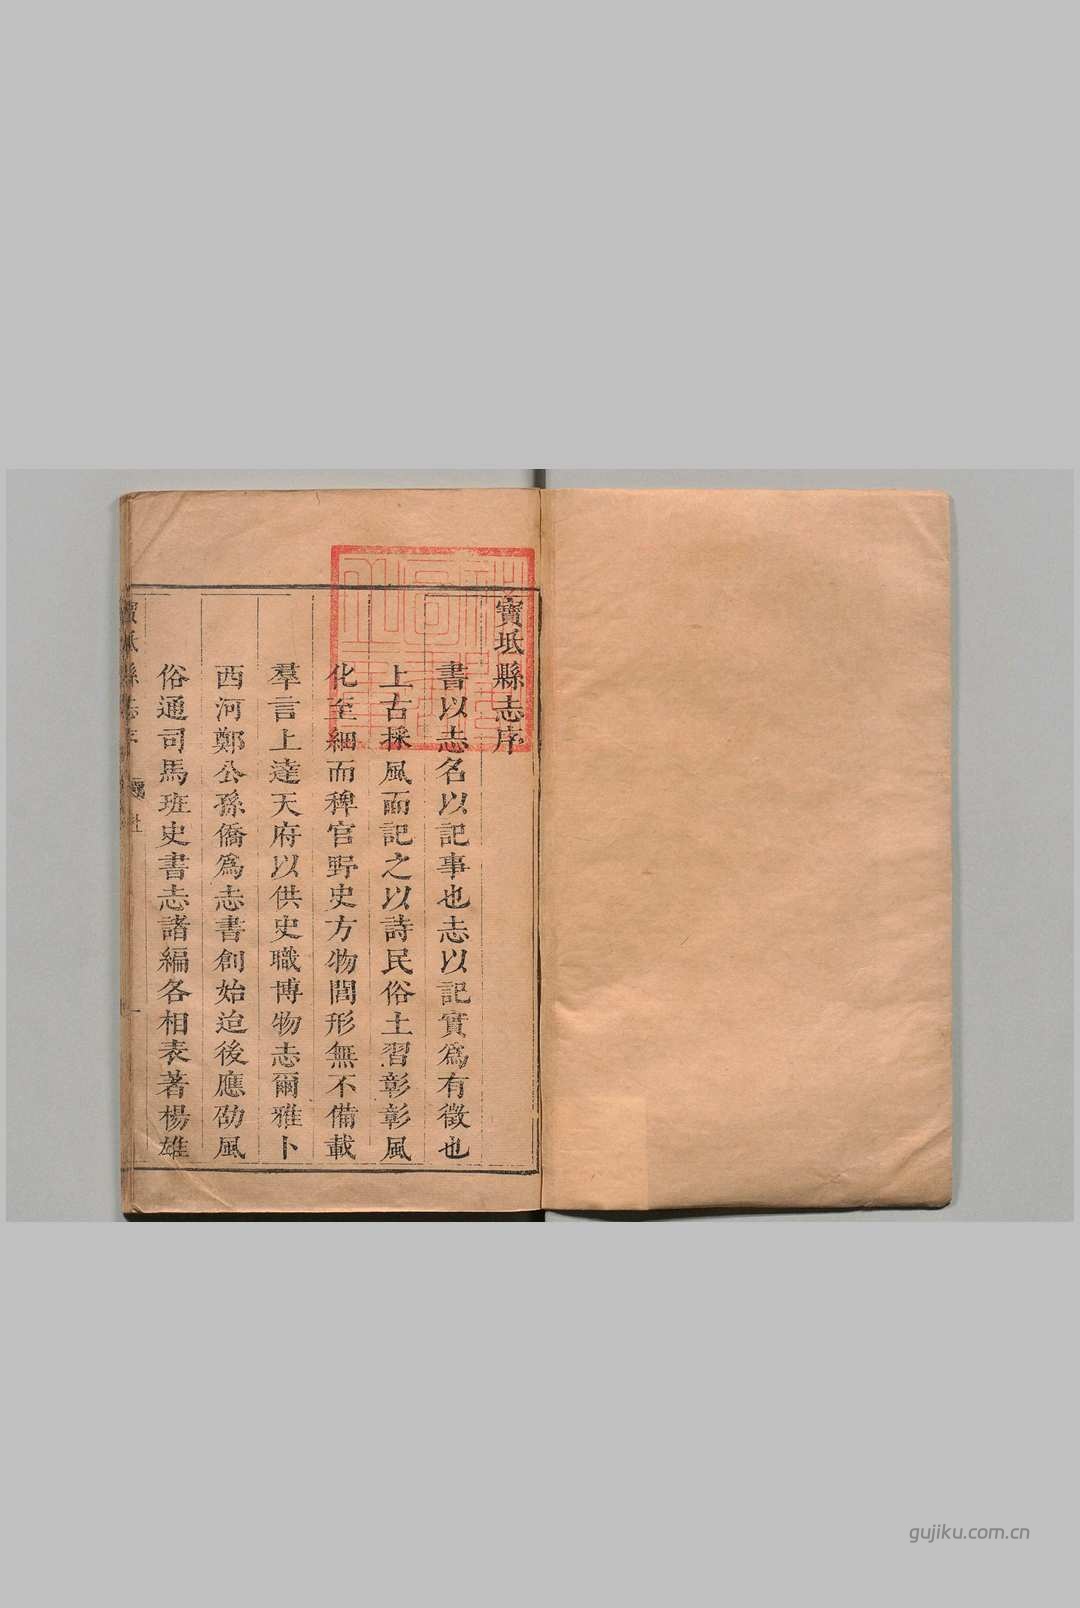 寶坻縣志序
書以志名以記事也志以記實爲有徵也
上古採風而記之以詩民俗土習彰彰風
化至細而稗官野史方物閭形無不備載
羣言上達天府以供史職博物志爾雅卜
西河鄭公孫僑爲志書創始迨後應劭風
俗通司馬班史書志諸編各相表著楊雄
寶坻縣志序
gujiku.com.cn